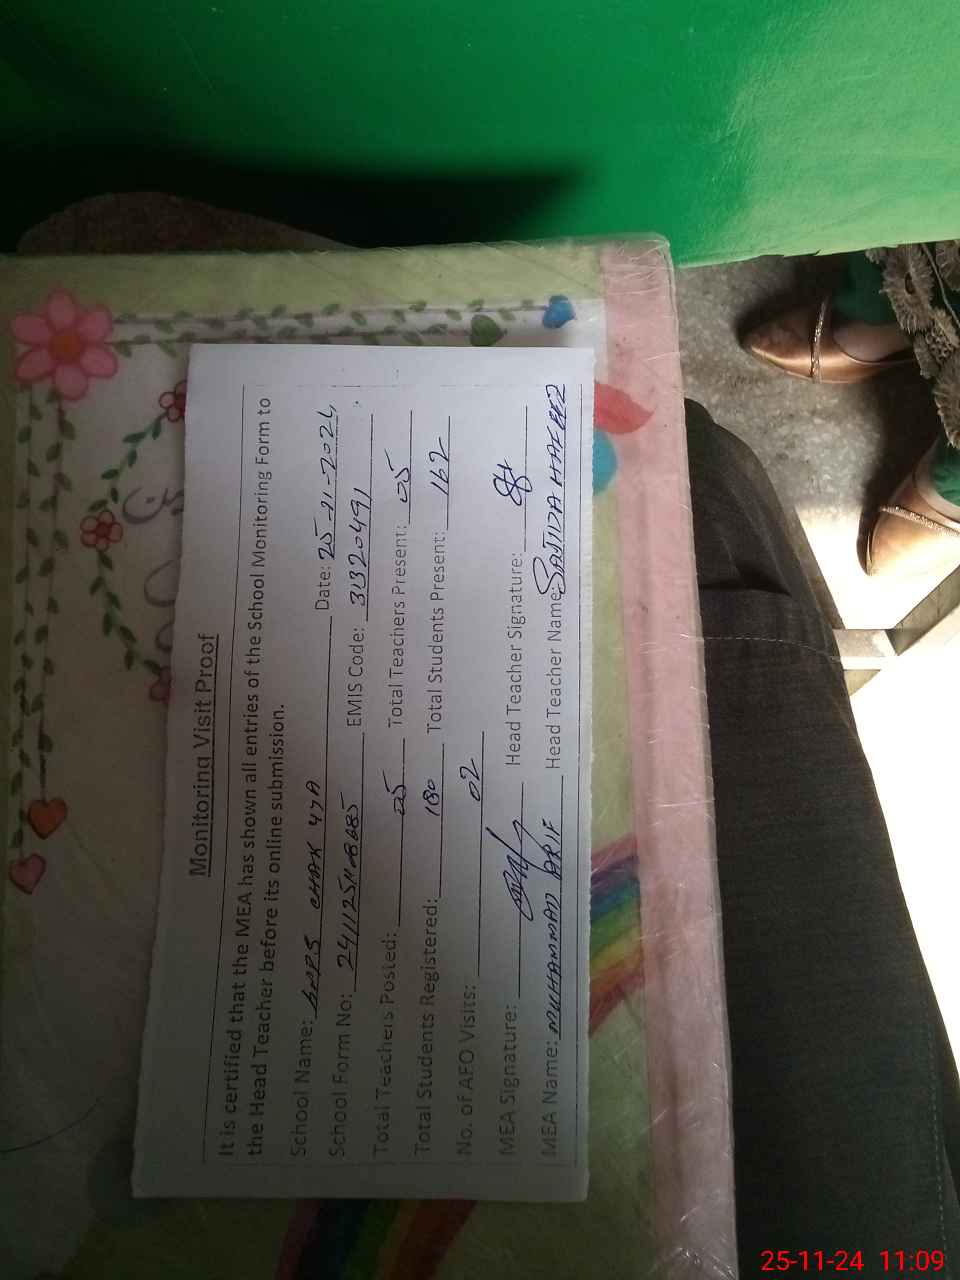 Monitoring Visit Proof
It is certified that the MEA has shown all entries of the School Monitoring Form to
the Head Teacher before its online submission.
School Name: GMPS CHAK 47A Date: 25-11-2024
School Form No: EMIS Code: 31320491
Total Teachers Posted: 05 Total Teachers Present: 05
Total Students Registered: 180 Total Students Present: 162
No. of AEO Visits: 02
MEA Signature: Head Teacher Signature:
MEA Name: MUHAMMAD ARIF Head Teacher Name: SAJIDA HAFEEZ
25-11-24 11:09